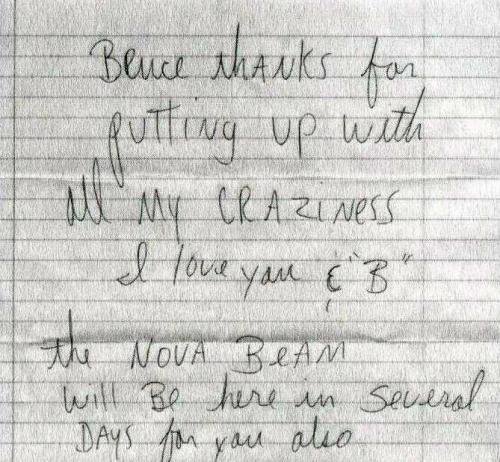 Bruce thANKS for
putting up with
all My CRAZINESS
I love you & "B"
the NOVA BEAM
will Be here in Several
DAYS for you also